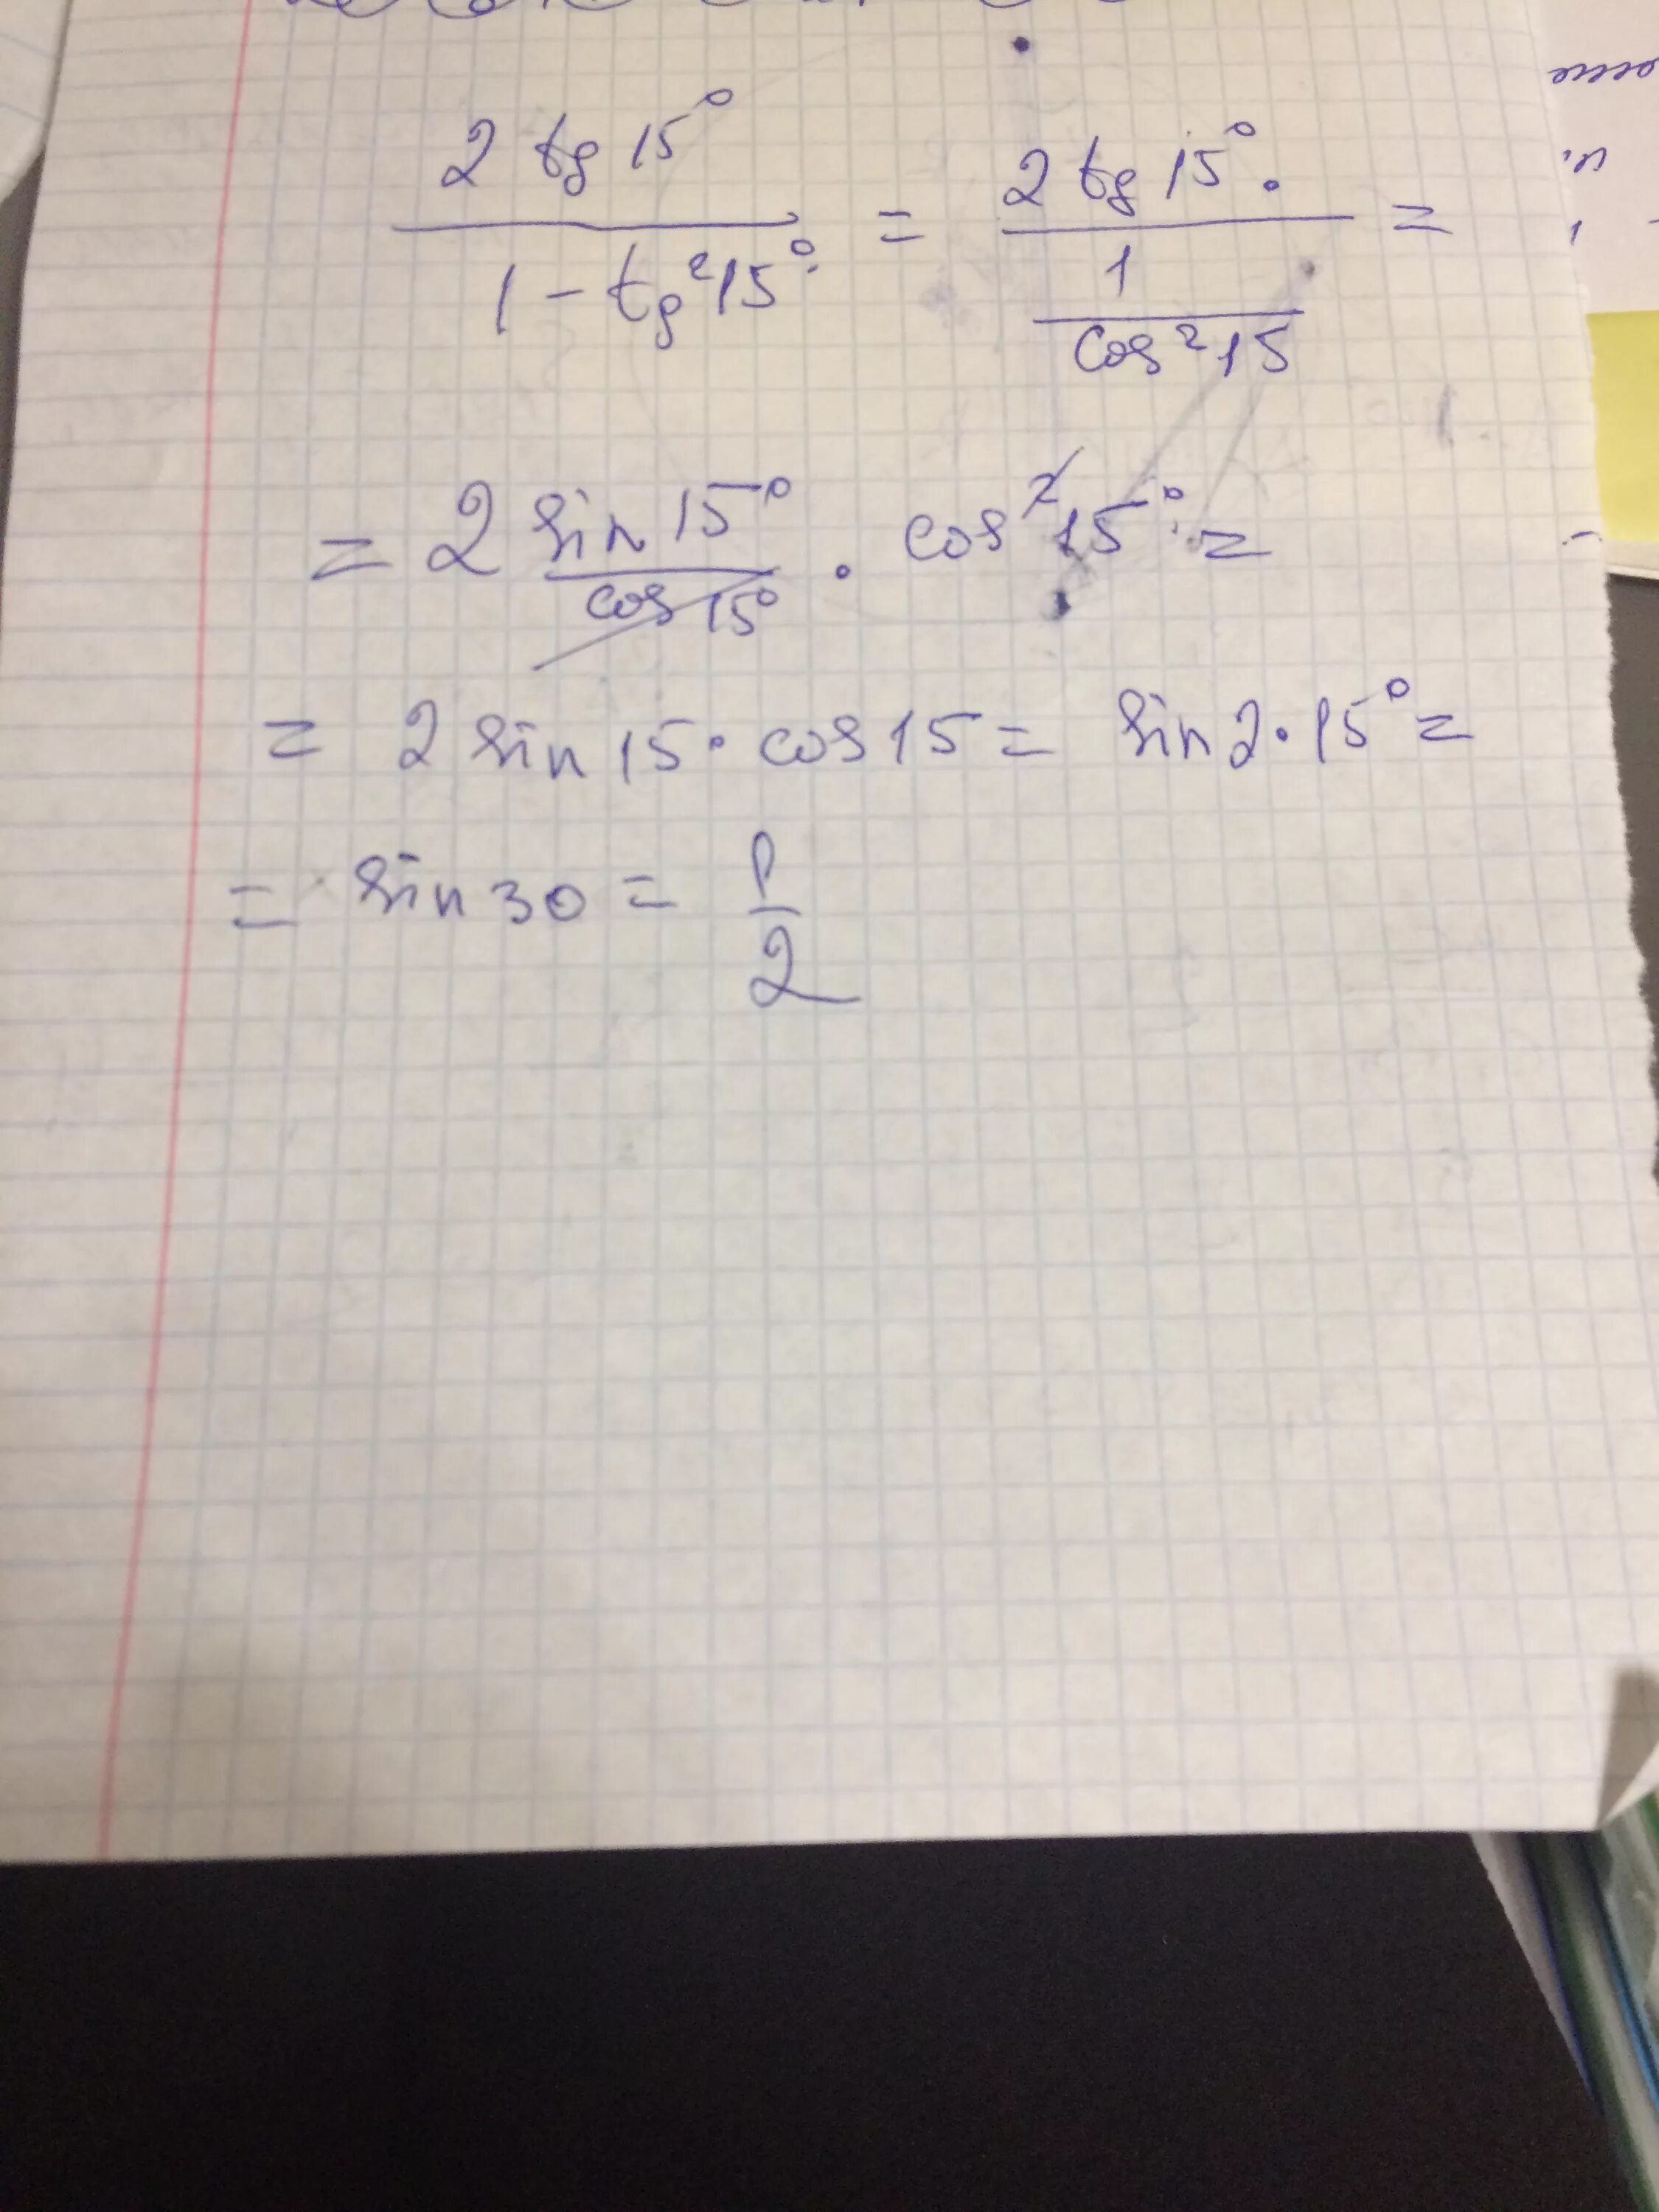 2 tg 15° / 1 - tg²15° = 2 tg 15° / 1 / cos²15 =
= 2 sin 15° / cos 15° · cos²15° =
= 2 sin 15 · cos 15 = sin 2 · 15° =
= sin 30 = 1/2